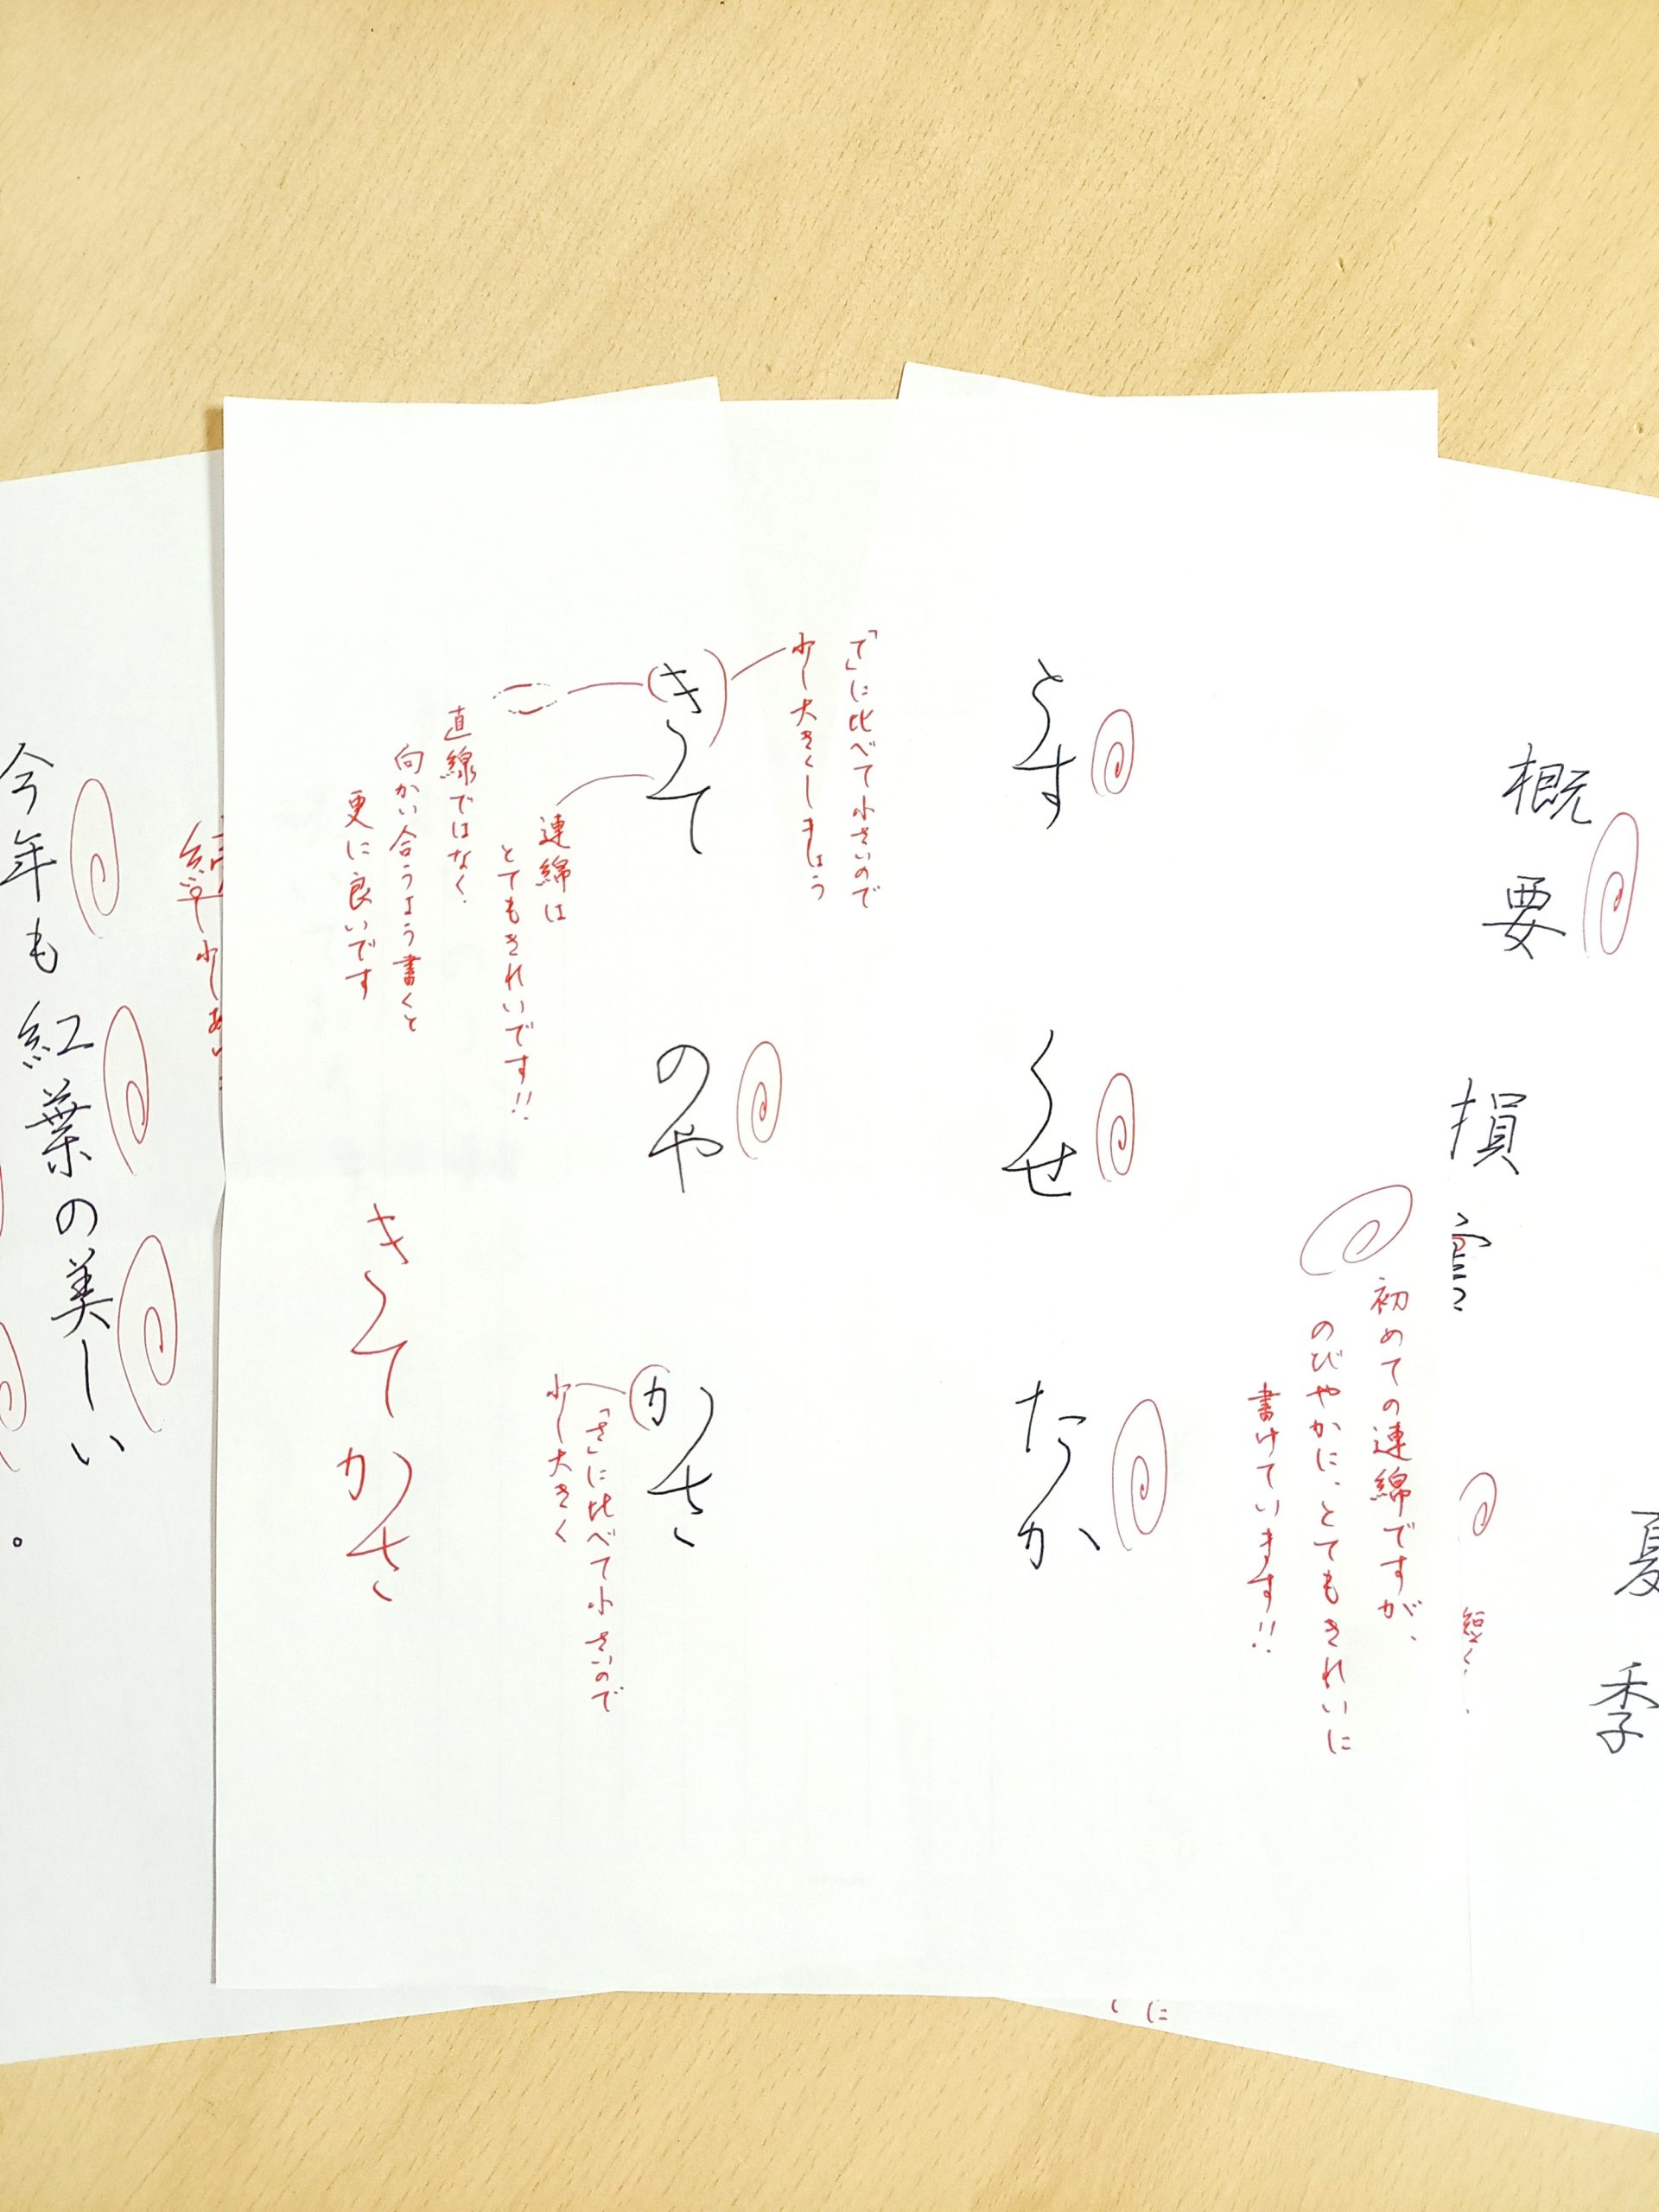 概要
損
夏季
短く
初めての連綿ですが、
のびやかに、とてもきれいに
書けています!!
とす
くせ
たか
「て」に比べて小さいので
少し大きくしましょう
きて
のや
かさ
「さ」に比べて小さいので
少し大きく
連綿は
とてもきれいです!!
直線ではなく、
向かい合うよう書くと
更に良いです
きて
かさ
に
今年も紅葉の美しい
。